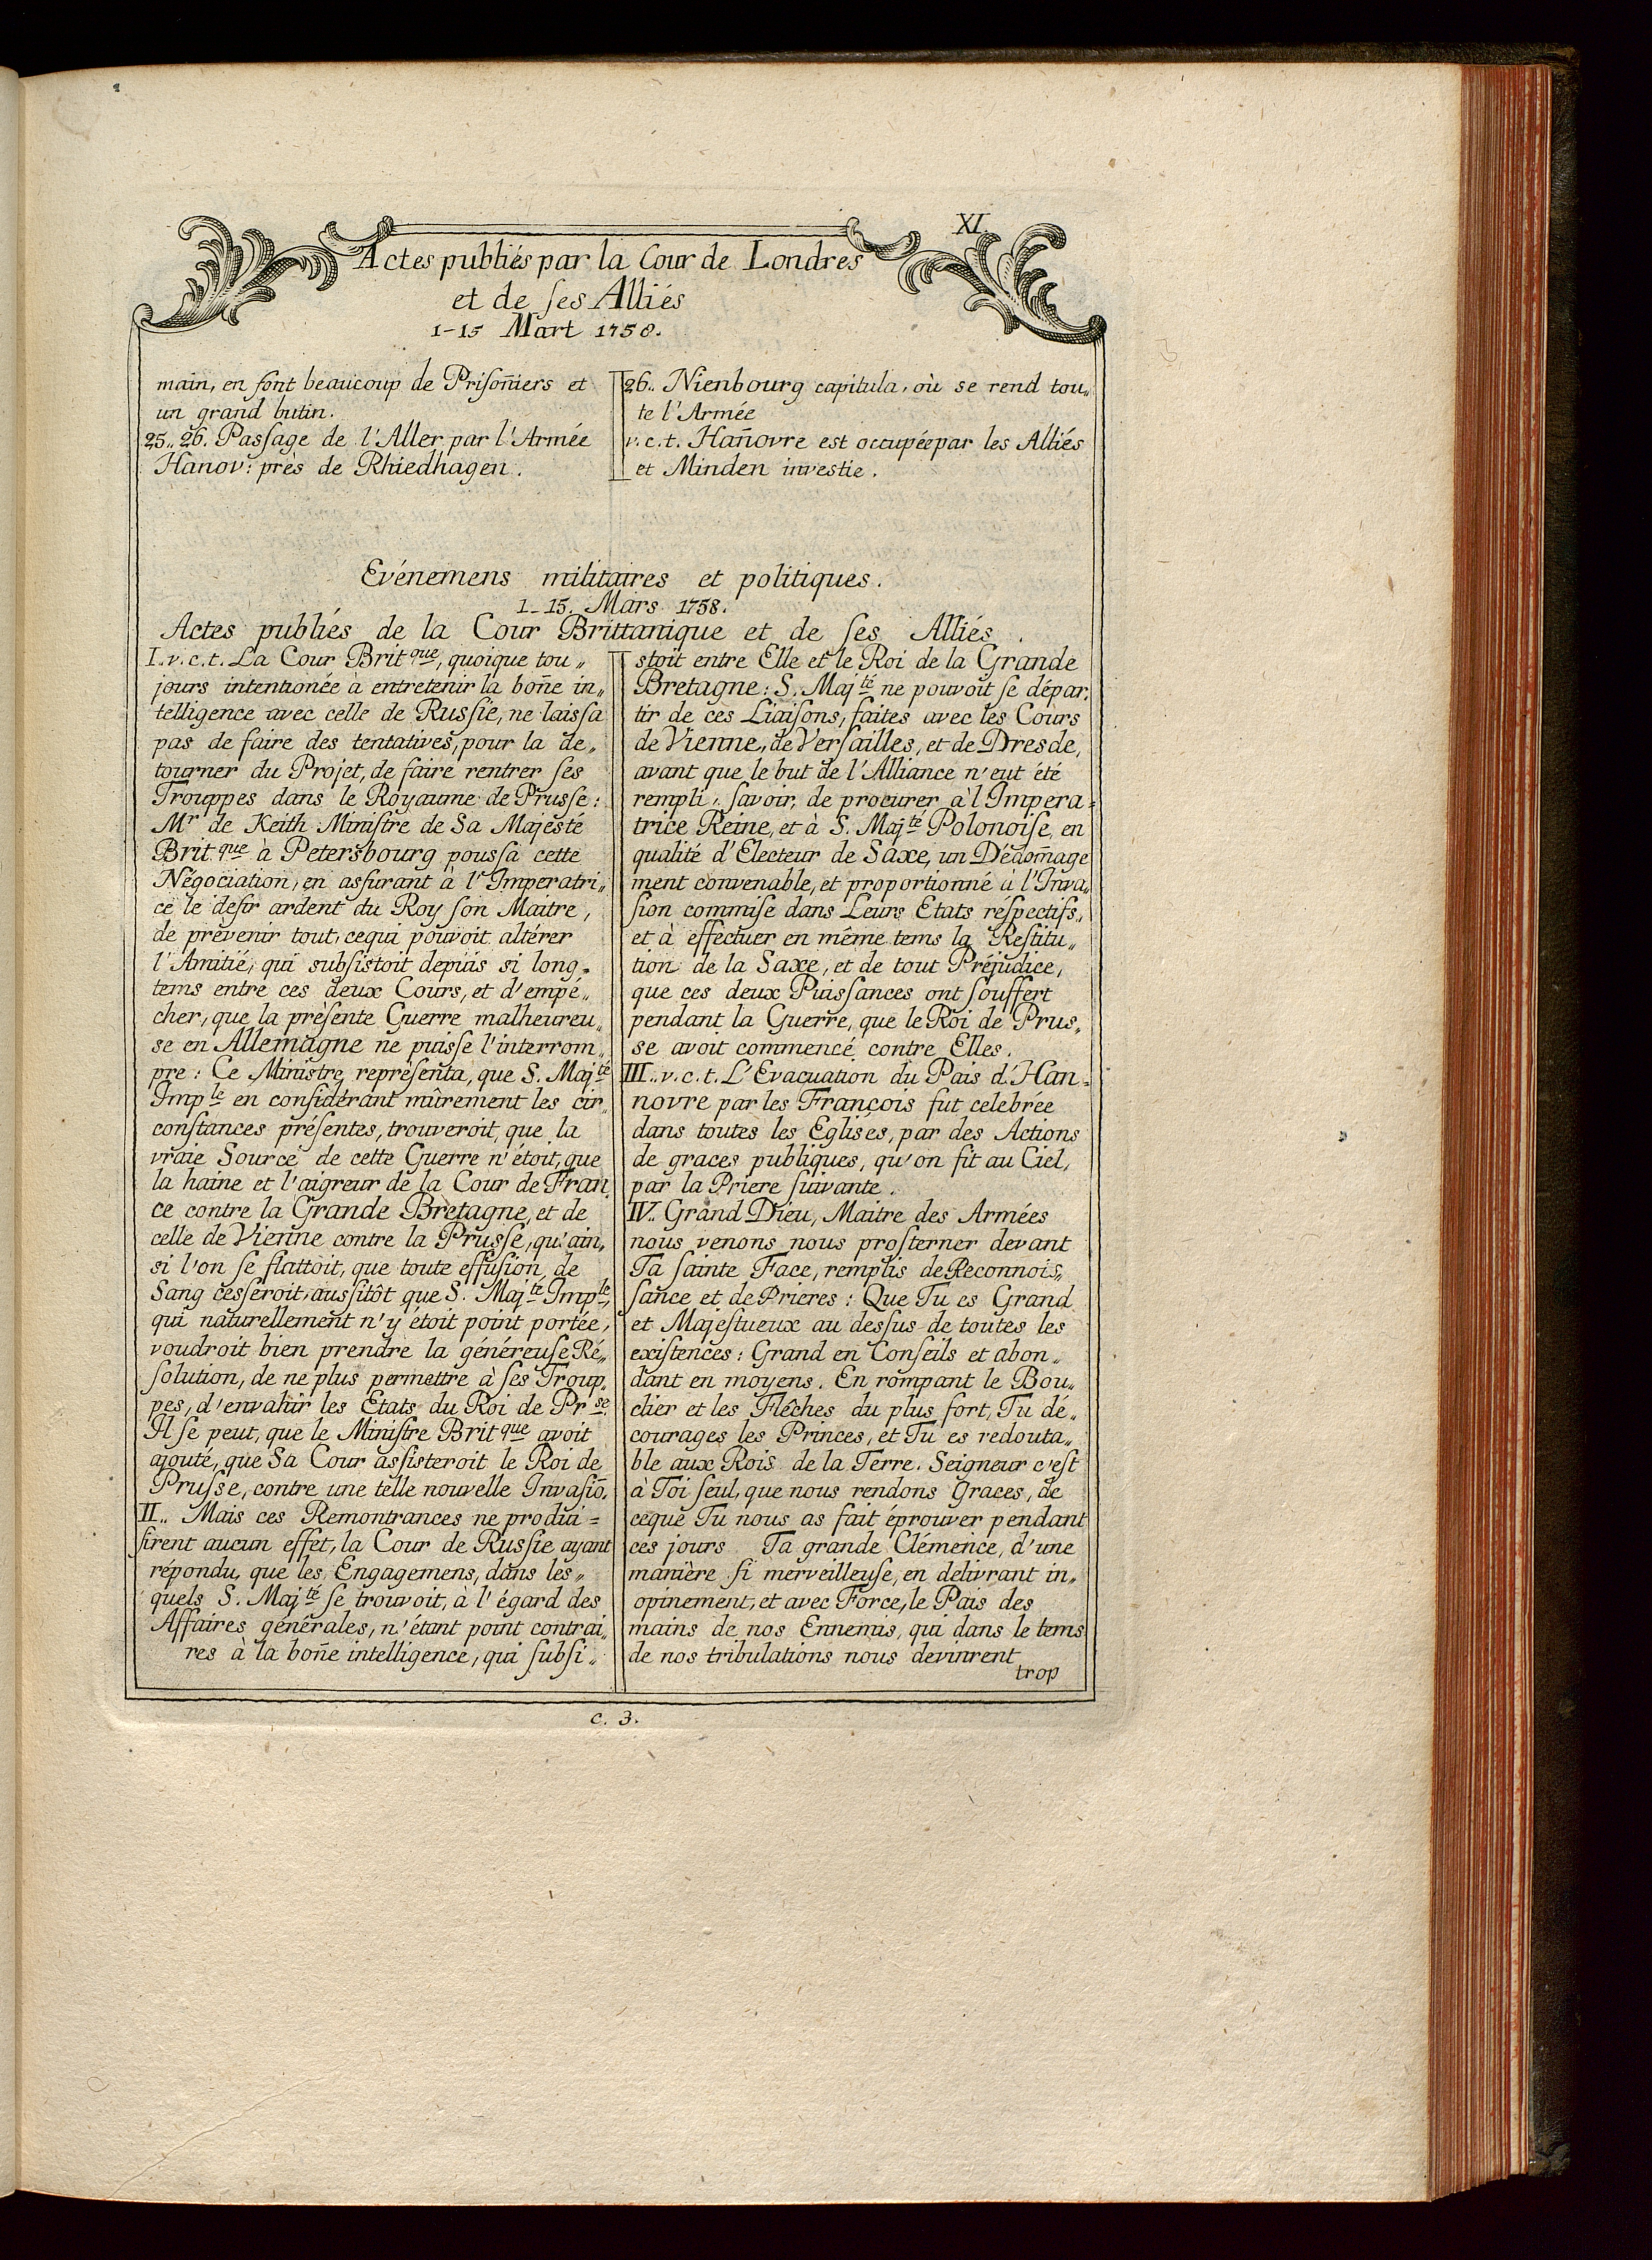 XI.
Actes publiés par la Cour de Londres
et de ſes Alliés
1-15 Mart 1758.
main, en font beaucoup de Priſoñiers et
un grand butin.
25,, 26. Paſsage de l'Aller par l'Armée
Hanov: près de Rhiedhagen.
26,, Nienbourg capitula, où se rend tou„
te l'Armée
v.c.t. Hañovre est occupée par les Alliés
et Minden investie.
Evénemens militaires et politiques.
1-15. Mars 1758.
Actes publiés de la Cour Brittanique et de ſes Alliés.
I. v.c.t. La Cour Brit que, quoique tou„
jours intentionée à entretenir la boñe in„
telligence avec celle de Ruſsie, ne laiſsa
pas de faire des tentatives, pour la de„
tourner du Projet, de faire rentrer ſes
Trouppes dans le Royaume de Pruſse:
Mr de Keith Miniſtre de Sa Majesté
Brit que à Petersbourg pouſsa cette
Négociation, en aſsurant à l'Imperatri„
ce le deſir ardent du Roy ſon Maitre,
de prévenir tout, cequi pouvoit altérer
l'Amitié, qui subſistoit depüis si long„
tems entre ces deux Cours, et d'empé„
cher, que la préſente Guerre malheureu„
se en Allemagne ne puiſse l'interrom„
pre: Ce Miniſtre repréſenta, que S. Maj té
Imp le en conſidérant mûrement les cir„
conſtances préſentes, trouveroit, que la
vraie Source de cette Guerre n'étoit, que
la haine et l'aigreur de la Cour de Fran„
ce contre la Grande Bretagne, et de
celle de Vienne contre la Pruſse, qu'ain„
si l'on ſe flattoit, que toute effuſion de
Sang ceſseroit, auſsitôt que S. Maj té Imp le,
qui naturellement n'y étoit point portée,
voudroit bien prendre la généreuſe Ré„
ſolution, de ne plus permettre à ſes Troup„
pes, d'envahir les Etats du Roi de Pr se.
Il ſe peut, que le Miniſtre Brit que avoit
ajouté, que Sa Cour aſsisteroit le Roi de
Pruſse, contre une telle nouvelle Invaſiõ.
II.. Mais ces Remontrances ne produi=
ſirent aucun effet, la Cour de Ruſsie ayant
répondu, que les Engagemens, dans les„
quels S. Maj té ſe trouvoit, à l'égard des
Affaires générales, n'étant point contrai„
res à la boñe intelligence, qui ſubſi„
stoit entre Elle et le Roi de la Grande
Bretagne: S. Maj té ne pouvoit ſe dépar„
tir de ces Liaiſons, faites avec les Cours
de Vienne, de Verſailles, et de Dresde,
avant que le but de l'Alliance n'eut été
rempli, ſavoir, de procurer à l'Impera=
trice Reine, et à S. Maj té Polonoiſe, en
qualité d'Electeur de Saxe, un Dédom̃age
ment convenable, et proportionné à l'Inva„
ſion commiſe dans Leurs Etats réſpectifs,
et à effectuer en même tems la Reſtitu„
tion de la Saxe, et de tout Préjudice,
que ces deux Puiſsances ont ſouffert
pendant la Guerre, que le Roi de Prus„
se avoit commencé contre Elles.
III.. v.c.t. L'Evacuation du Pais d'Han=
novre par les François fut celebrée
dans toutes les Egliſes, par des Actions
de graces publiques, qu'on fit au Ciel,
par la Priere ſuivante.
IV.. Grand Dieu, Maitre des Armées
nous venons nous proſterner devant
Ta ſainte Face, remplis de Reconnois„
ſance et de Prieres: Que Tu es Grand
et Majeſtueux au deſsus de toutes les
exiſtences: Grand en Conſeils et abon„
dant en moyens. En rompant le Bou„
clier et les Flêches du plus fort, Tu dé„
courages les Princes, et Tu es redouta„
ble aux Rois de la Terre. Seigneur c'eſt
à Toi ſeul, que nous rendons Graces, de
ceque Tu nous as fait éprouver pendant
ces jours Ta grande Clémence, d'une
manière ſi merveilleuſe, en delivrant in„
opinement, et avec Force, le Pais des
mains de nos Ennemis, qui dans le tems
de nos tribulations nous devinrent
trop
c. 3.